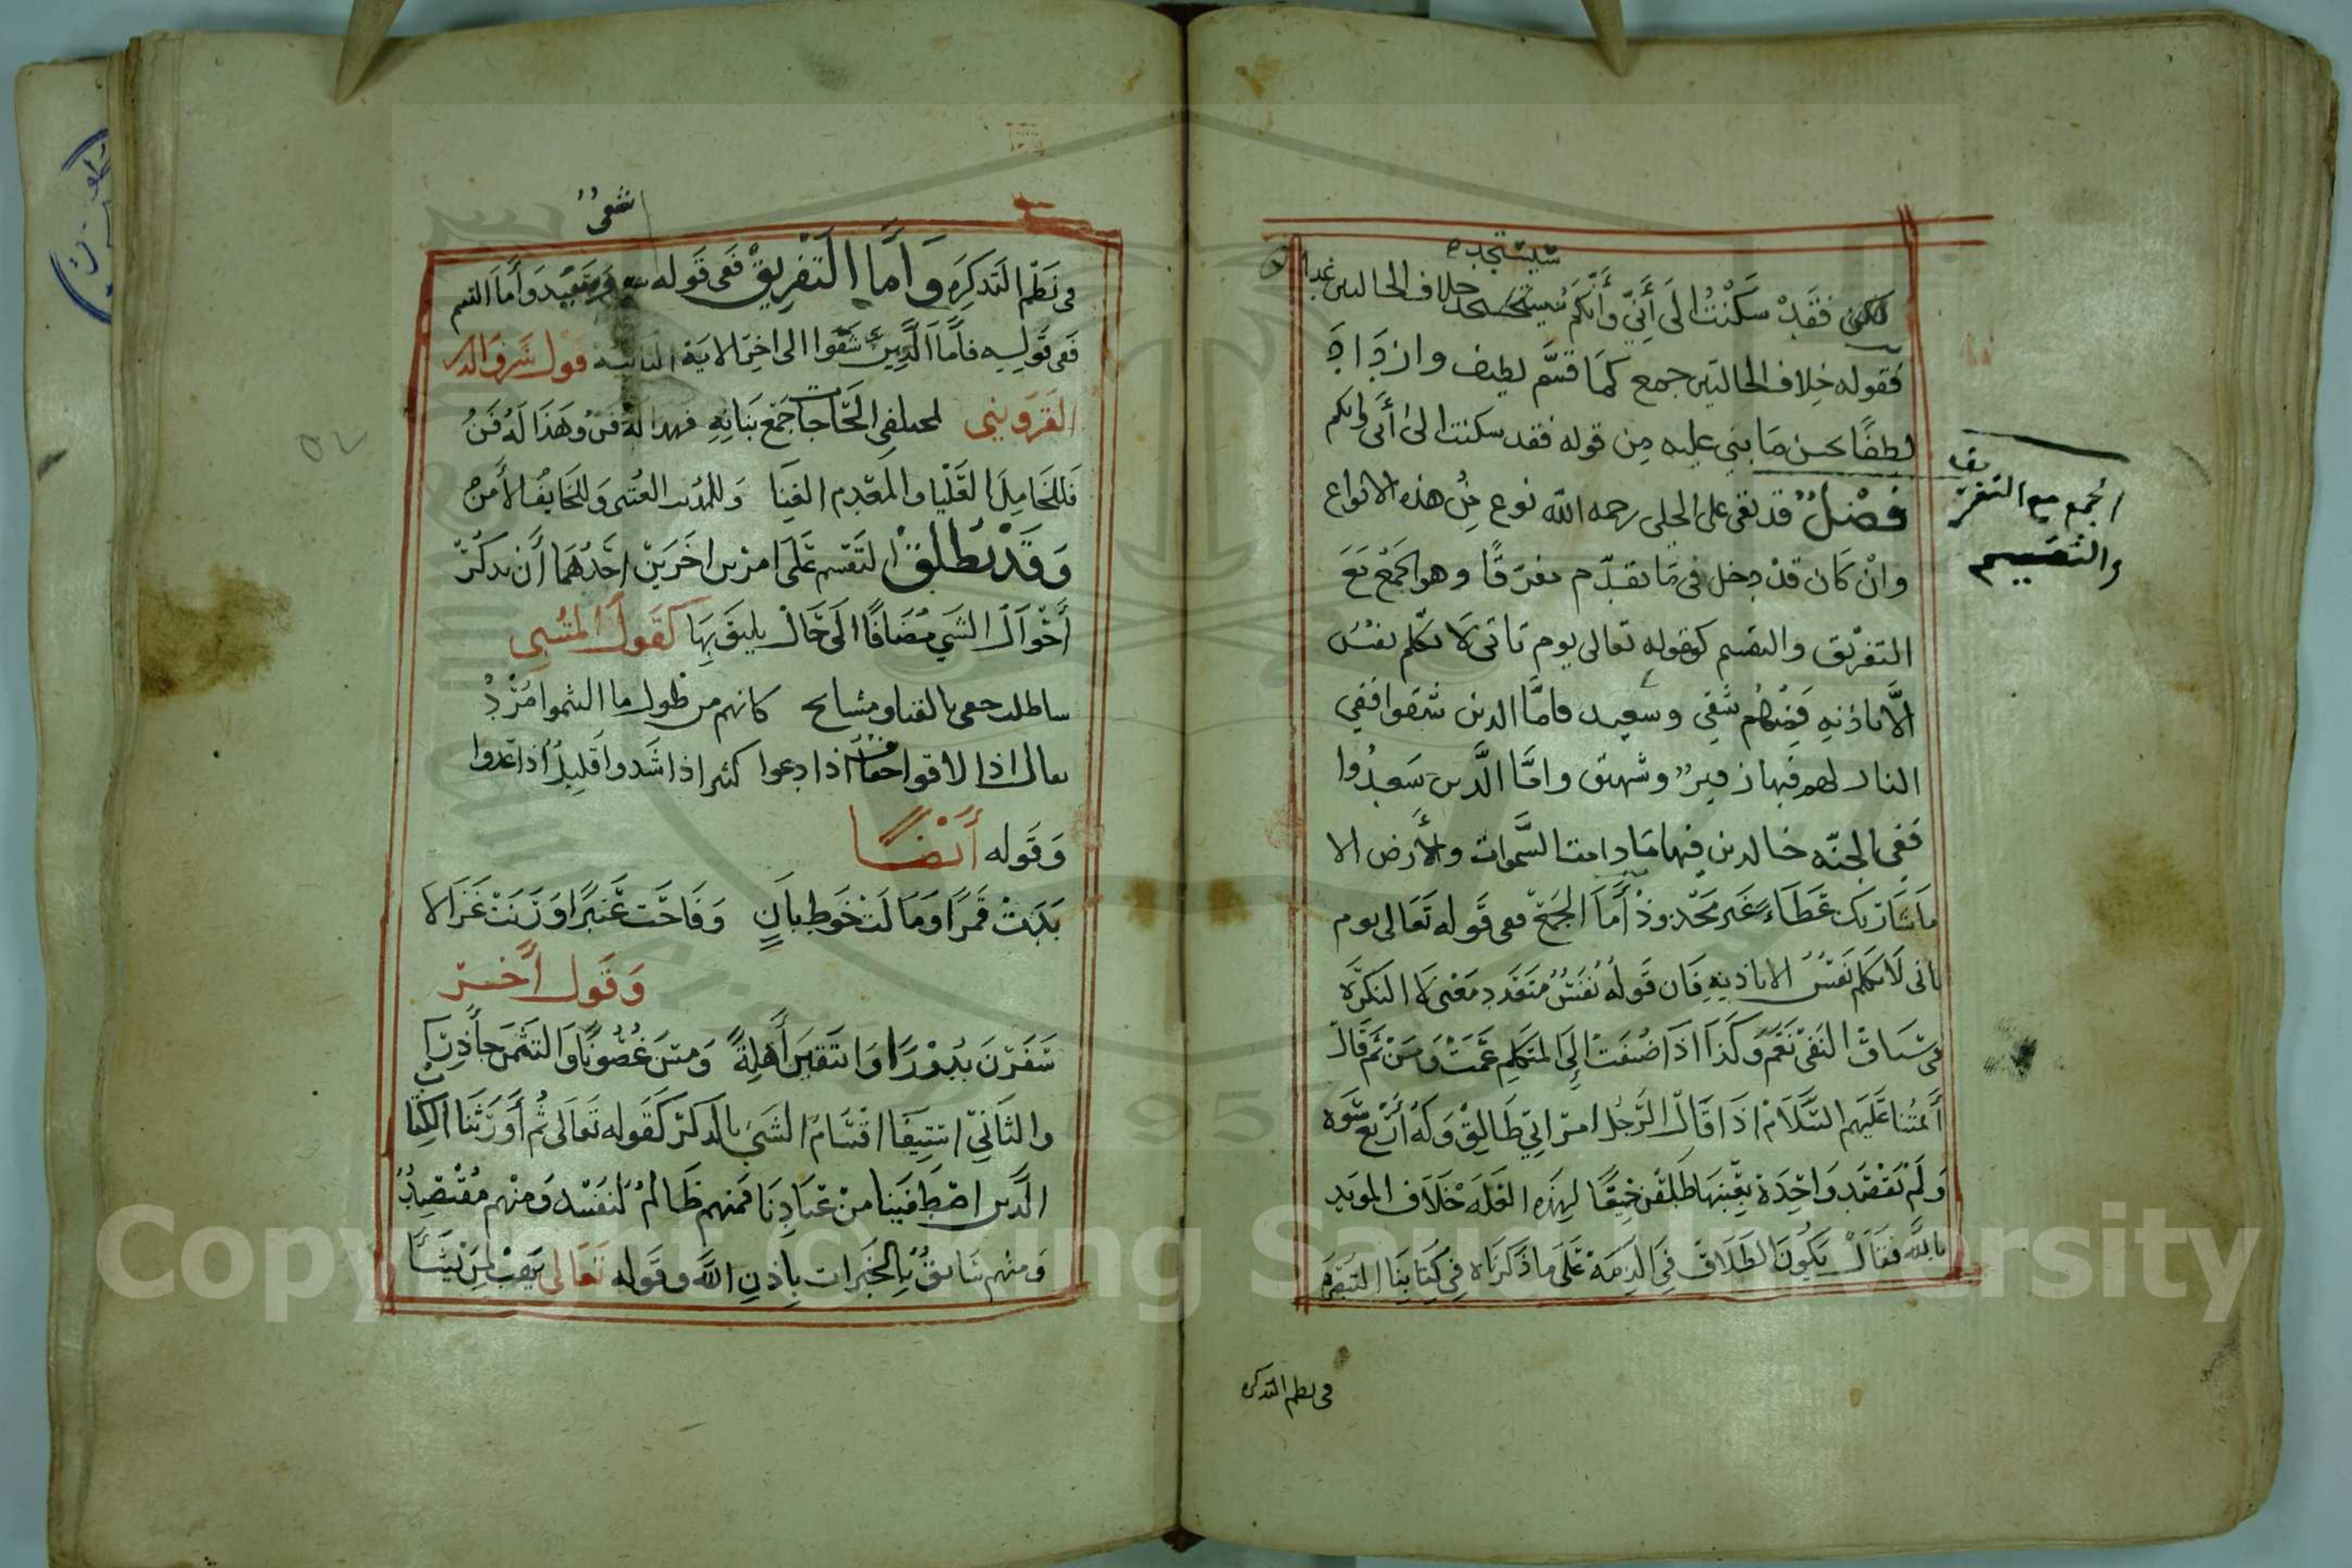 ستستجده
لكن فقد سكنت الى أني وأنكم خلاف الحالين غدا
فقوله خلاف الحالتين جمع كما قسم لطيف وازداد
لطفا بحسن ما بني عليه من قوله فقد سكنت الى أني وانكم
فصل قد بقي على الحلي رحمه الله نوع من هذه الانواع
وان كان قد دخل في ما تقدم مفرقا وهو الجمع مع
التفريق والتقسيم كقوله تعالى يوم تاتي لا تكلم نفس
الا باذنه فمنهم شقي وسعيد فاما الذين شقوا ففي
النار لهم فيها زفير وشهيق واما الذين سعدوا
ففي الجنه خالدين فيها ما دامت السموات والأرض الا
ما شا ربك عطاء غير مجذوذ أما الجمع ففي قوله تعالى يوم
ياتي لا تكلم نفس الا باذنه فان قوله نفس متعدد معنى لا النكرة
في سياق النفي تعم وكذا اذا اضيفت إلى المتكلم عمت ومن ثم قال
أئمتنا عليهم السلام اذا قال الرجل امراتي طالق وله أربع نسوه
ولم يقصد واحدة بعينها طلقن جميعا لهذه العله خلاف المويد
بالله فقال يكون الطلاق في الذمة على ما ذكرناه في كتابنا
في نظم التذكره
الجمع مع التفريق
والتقسيم
شقي
في نظم التذكره وأما التفريق ففي قوله وسعيد وأما القسم
ففي قوله فأما الذين شقوا الى اخر الاية الثانيه قول شرف الدين
القزويني لمختلفي الحاجات جمع ببابه فهذا له فن وهذا له فن
فللخامل العليا وللمعدم الغنا وللمذنب العتبى وللخايف الأمن
وقد يطلق التقسيم على امرين اخرين احدهما أن يذكر
أحوال الشي مضافا الى حال يليق بها كقول المتنبي
ساطلب حقي بالقنا ومشايح كانهم من طول ما التثموا مرد
ثقال اذا لاقوا خفاف اذا دعوا كثير اذا شدوا قليل اذا عدوا
وقوله أيضا
بدت قمرا ومالت خوط بان وفاحت عنبرا ورنت غزالا
وقول أخر
سفرن بدورا وانتقبن أهلة ومسن غصونا والتفتن جأذرا
والثاني استيفا اقسام الشي بالذكر كقوله تعالى ثم أورثنا الكتاب
الذين اصطفينا من عبادنا فمنهم ظالم لنفسه ومنهم مقتصد
ومنهم سابق بالخيرات بإذن الله وقوله تعالى يهب لمن يشا
Copyright © King Saud University